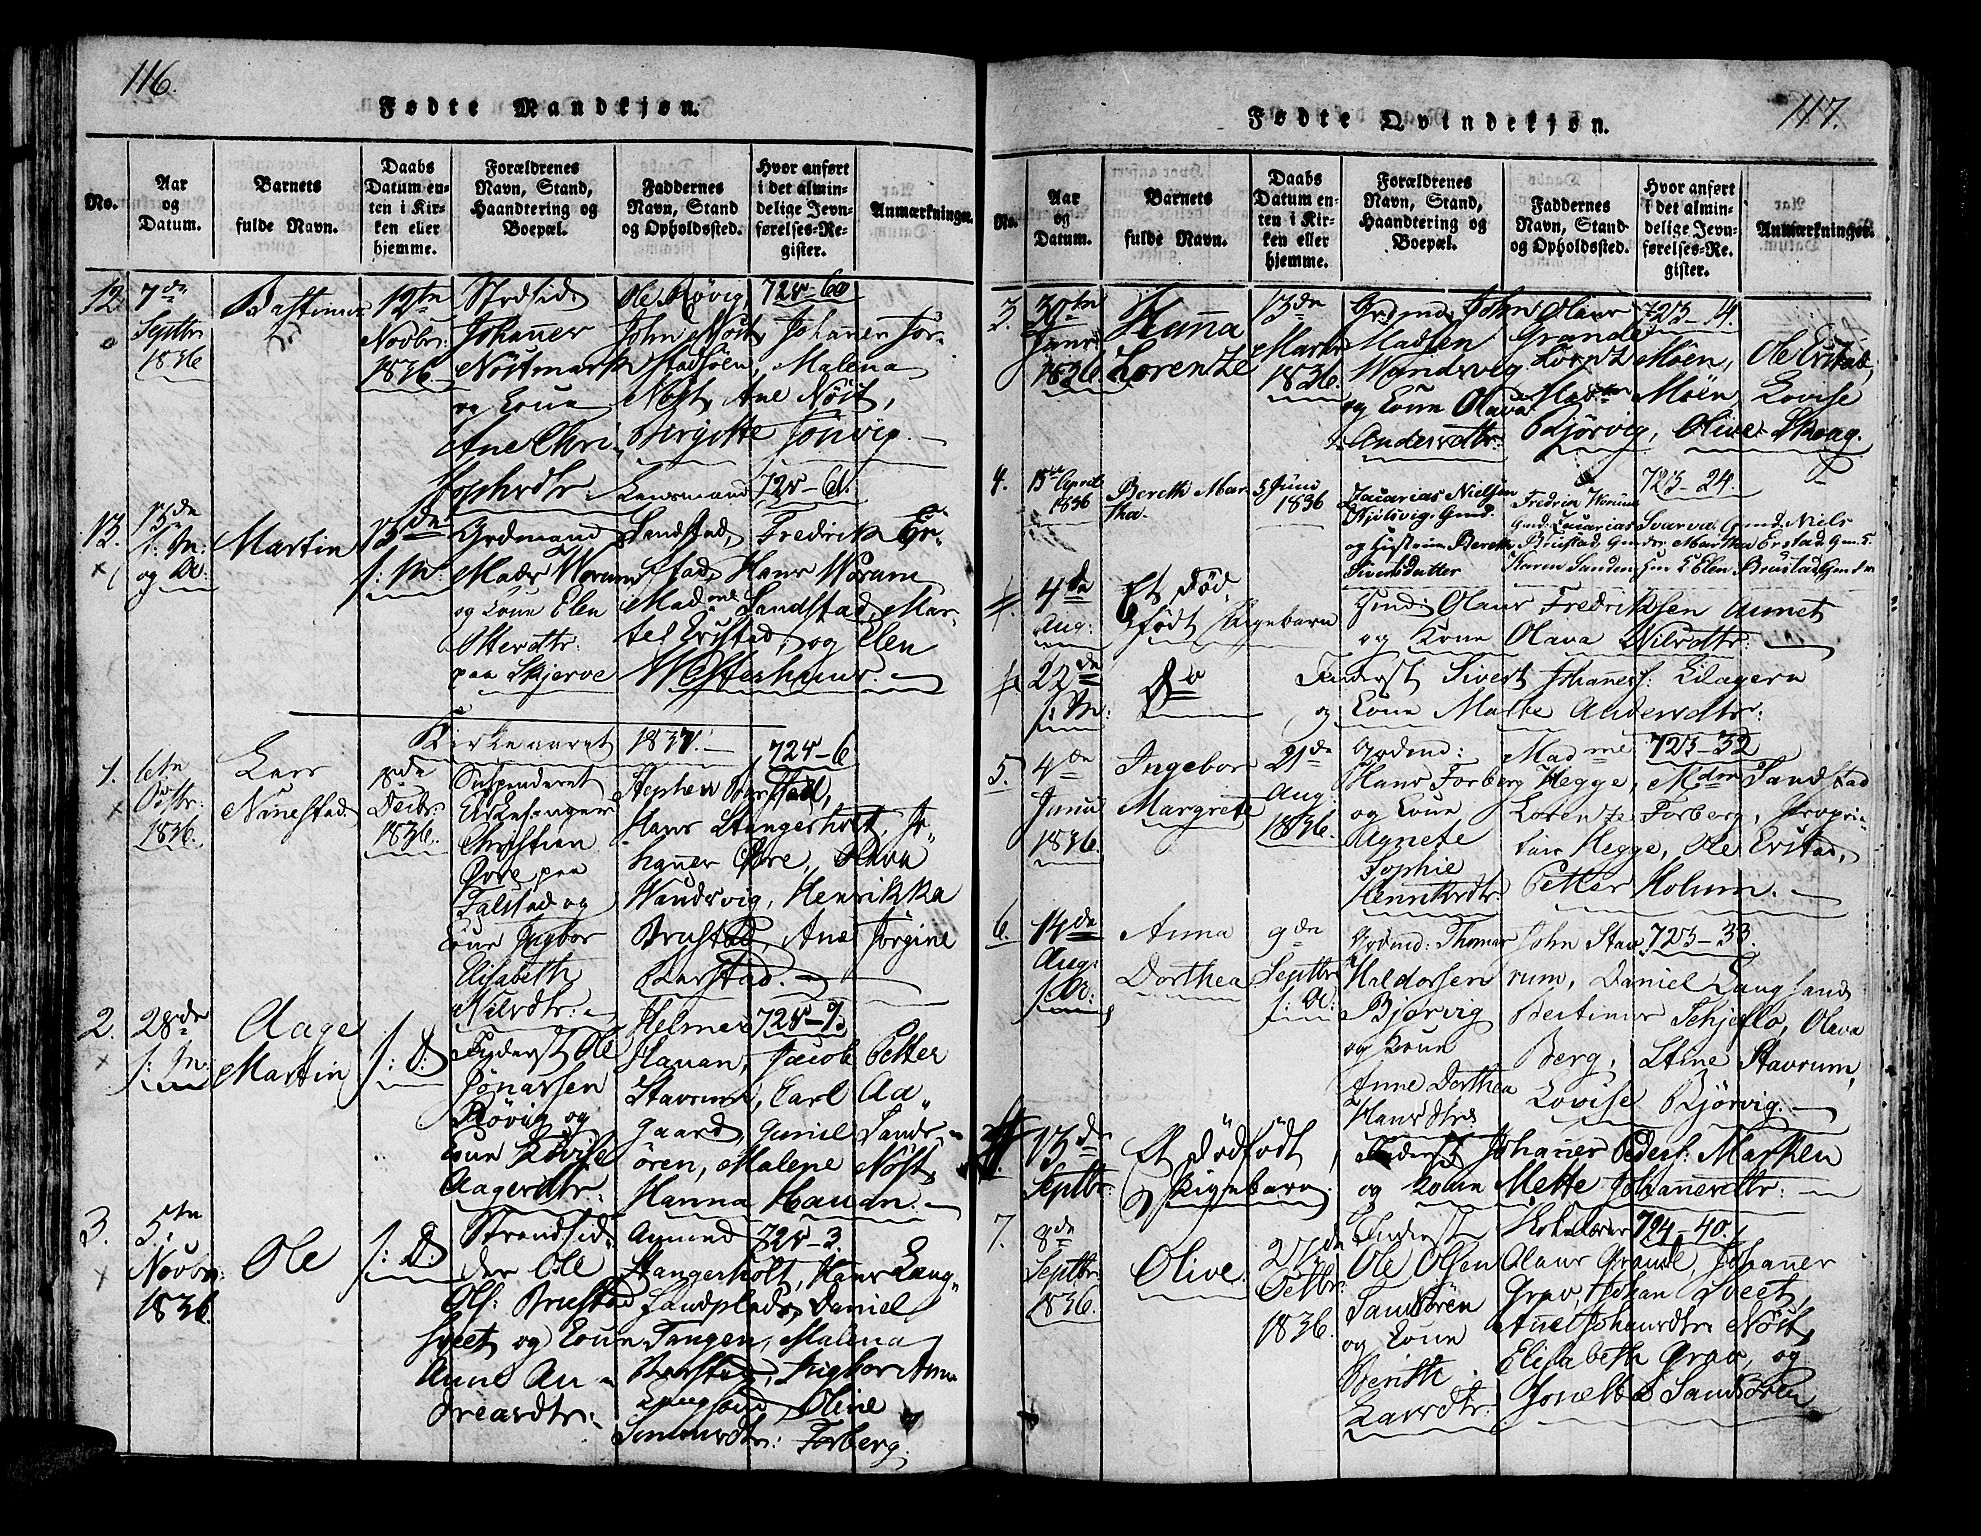 116.
Fødte Mandkjøn.
No.
Aar og Datum.
Barnets fulde Navn.
Daabs Datum enten i Kirken eller hjemme.
Forældrenes Navn, Stand, Haandtering og Boepæl.
Faddernes Navn, Stand og Opholdssted.
Hvor anført i det almindelige Jevnførelses-Register.
Anmærkninger.
12
7de Septbr 1836
12te Novbr: 1836
Strdsid
Johaner
Nöstmark
og Kone
Ane Chri-
stophrdtr:
Ole Røvig,
John Nöst, Johaner Jör-
stadsöen, Malena
Nöst, Ane Nöst,
Birgitte Jonvig.
725-60
13.
13de
og A:
Martin
13de
Grdmand
Mads Worum
og Kone Elen
Ottersdtr:
paa Skjerve
Lensmand
Sandstad, Fredrik
Stad, Hans Worum
Madme Sandstad, Mar-
tel Eristad, og Elen
Westerhuus.
725-61.
Kirkeaaret 1837.
1.
6te Octbr: 1836
Lars
8de Decbr: 1836.
Suspenderet
Kirkesanger
Christian
Övre paa
Falstad og
Kone Ingbor
Elisabeth
Nilsdtr:
Stephen
Hans Stangerholt, Jo-
hanner Övre, Olava
Wandsvig, Henrikka
Brustad, Ane Jörgine
Barstad.
725-6
2.
28de
Aage
Martin
s: D:
Inderst Ole
Jonassen
Røvig og
Kone Lovise
Aagesdtr:
Helmer
Hauan, Jacob Petter
Stavrum, Carl Aa-
gaard, Guniel Sands-
ören, Malene Nöst,
Hanna Hauan.
725-9.
3.
5te Novbr: 1836.
Ole
s: D:
Strandsid-
der Ole
Ols: Brustad
Sveet og Kone
Anne An-
dreasdtr:
Amund
Stangerholt, Hans Lang-
Sandplads, Daniel
Tangen, Malena
Brustad, Ingbor Anna
Langsand, Oline
Simensdtr: Forberg.
725-3.
117.
Fødte Qvindekjøn.
No.
Aar og Datum.
Barnets fulde Navn.
Daabs Datum enten i Kirken eller hjemme.
Forældrenes Navn, Stand, Haandtering og Boepæl.
Faddernes Navn, Stand og Opholdssted.
Hvor anført i det almindelige Jevnførelses-Register.
Anmærkninger.
3.
30te Janr: 1836
Hanna
Lorentze
13de Marts 1836.
Grdmd: John
Madsen
Wandsvig
og Kone Olava
Andersdtr:
Olaus
Grande
Lorentz Möen, Ole Erstad,
Madme Möen Lovise
Bjørvig, Olive Skoag.
723-14.
4.
15de April 1836
Bereth Mar-
tha.
5 Juni 1836
Zacarias Nielsen
Kjölsvig. Gmd.
og Hustrue Bereth
Sivertsdatter
Fredrik Worum
Gmd. Zacarias Svarva Gmd. Niels
Brustad Gmds: Martha Erstad Gm. S.
Karen Sanden, Elen Brustad, Gmd.
723-24.
4de Aug:
Et Död-
födt Pigebarn
Gmd: Olaus Fredriksen Aunet
og Kone Olava Nilsdtr:
22de
Do
Inderst Sivert Johaness: Lilagern
og Kone Malene Andersdtr:
5.
4de Juni 1836.
Ingebor
Margrete
21de Aug: 1836.
Grdmd:
Hans Forberg
og Kone
Agnete
Sophie
Henriksdtr:
Madme
Hegge, Mdm Sandstad
Lorentze Forberg, Propri-
tair Hegge, Ole Erstad,
Petter Holum.
723-32
6.
14de Aug:
Anna
Dorthea
9de Septbr
Grdmd: Thomas
Haldorsen
Bjørvig
og Kone
Anne Dorthea
Hansdtr:
John Stav-
rum, Daniel Langsand
Bertinus Schjeflo, Olava
Berg, Stine Stavrum,
Lovise Bjørvig.
723-33.
13de Septbr:
Et dödfödt
Pigebarn
Inderst Johaner Peders: Marken
og Kone Mette Johanesdtr:
7.
8de Septbr: 1836.
Olive
27de Octbr: 1836.
Inderst
Ole Olsen
Sandören
og Kone
Berith
Larsdtr:
Olaus Grande, Johaner
Grav, Johan Sveet,
Anne Johansdtr: Nöst,
Elisabeth Grav, og
Jonetta Sandören
724-40.